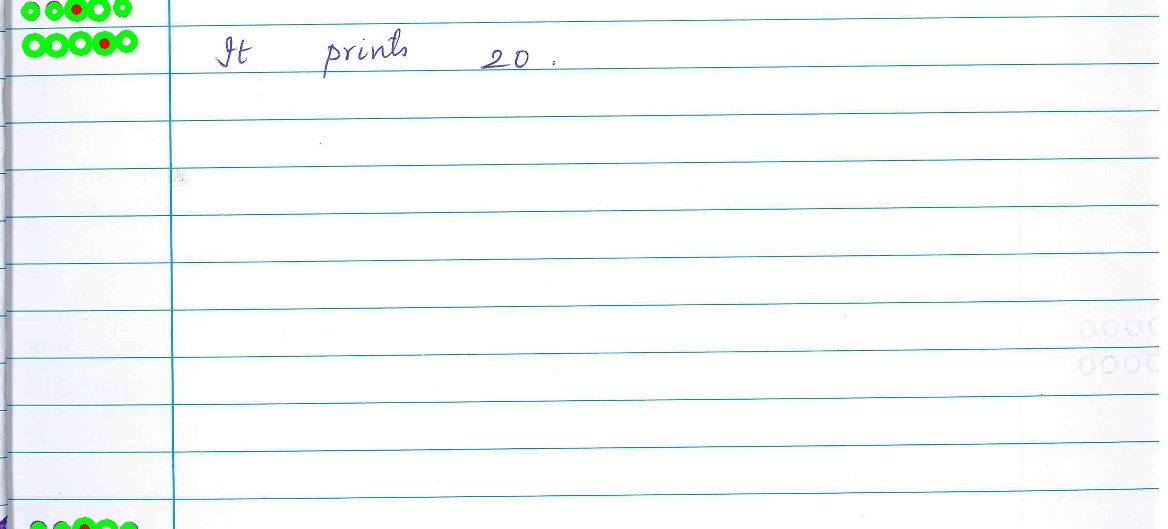 It prints 20.